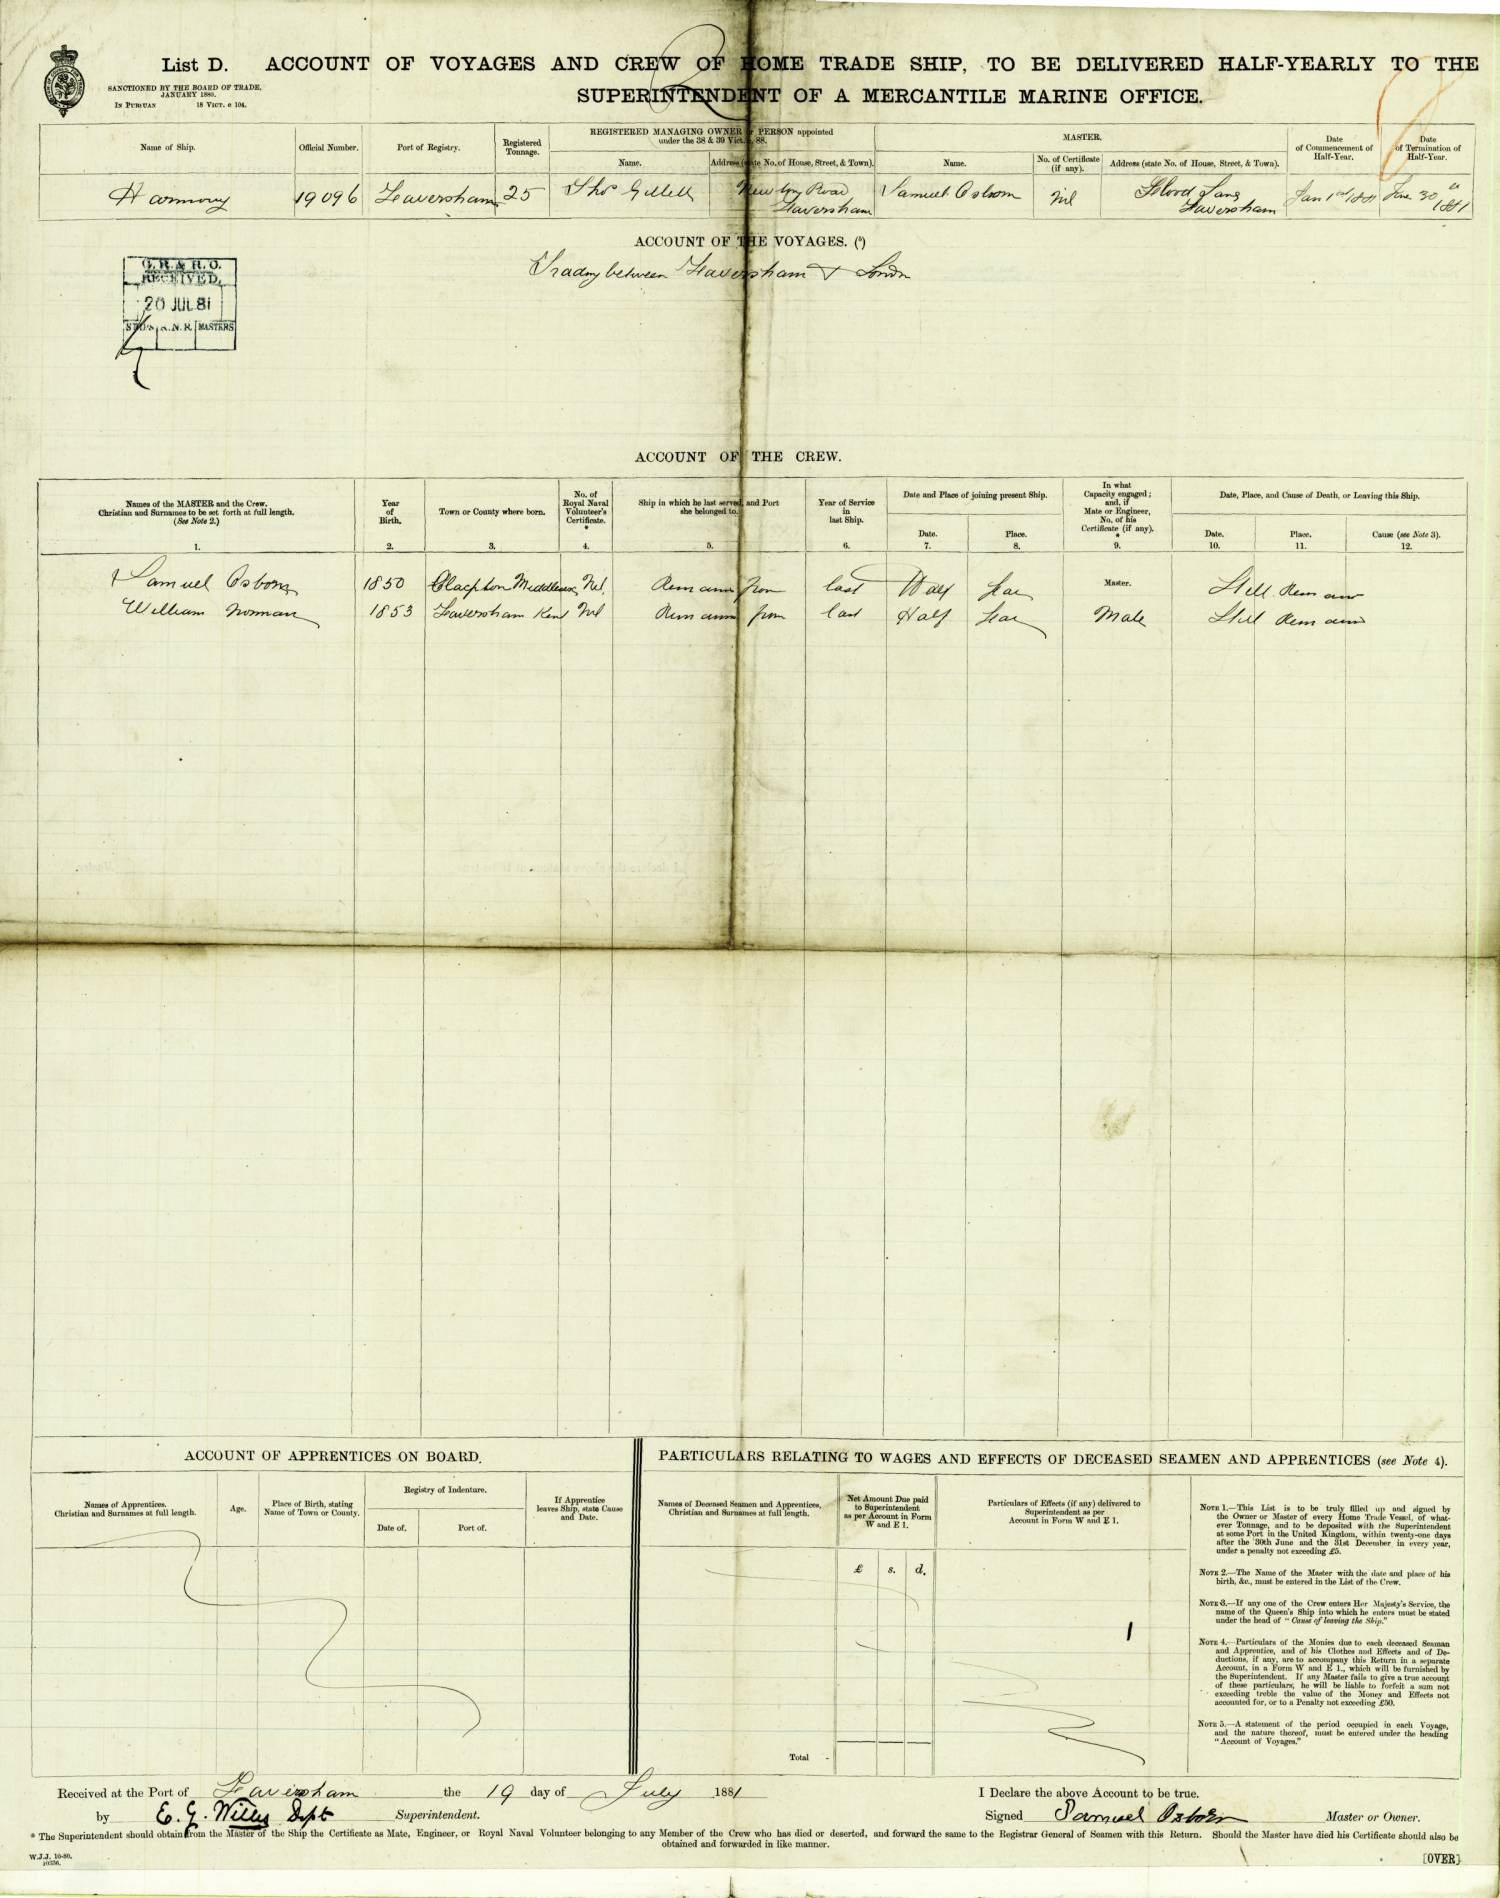 List D. ACCOUNT OF VOYAGES AND CREW OF HOME TRADE SHIP, TO BE DELIVERED HALF-YEARLY TO THE
SUPERINTENDENT OF A MERCANTILE MARINE OFFICE.
SANCTIONED BY THE BOARD OF TRADE,
JANUARY 1880.
IN PURUAN 18 VICT. c 104.
Name of Ship.
Official Number.
Port of Registry.
Registered
Tonnage.
REGISTERED MANAGING OWNER or PERSON appointed
under the 38 & 39 Vict. c. 88.
Name.
Address (state No. of House, Street, & Town).
MASTER.
Name.
No. of Certificate
(if any).
Address (state No. of House, Street, & Town).
Date
of Commencement of
Half-Year.
Date
of Termination of
Half-Year.
Harmony 19096 Faversham 25 Thos Gillett
Road
Faversham
Samuel Osborn Nil
Lane
Faversham
Jan 1st 1881
June 30th
1881
ACCOUNT OF THE VOYAGES. (5)
Trading between Faversham & London
G. R. & R. O.
RECEIVED.
20 JUL 81
SHIPS R.N.R. MASTERS
ACCOUNT OF THE CREW.
Names of the MASTER and the Crew.
Christian and Surnames to be set forth at full length.
(See Note 2.)
1.
Year
of
Birth.
2.
Town or County where born.
3.
No. of
Royal Naval
Volunteer's
Certificate.
*
4.
Ship in which he last served, and Port
she belonged to.
5.
Year of Service
in
last Ship.
6.
Date and Place of joining present Ship.
Date.
7.
Place.
8.
In what
Capacity engaged;
and, if
Mate or Engineer,
No. of his
Certificate (if any).
*
9.
Date, Place, and Cause of Death, or Leaving this Ship.
Date.
10.
Place.
11.
Cause (see Note 3).
12.
Samuel Osborn 1850 Clapton Middlesex Nil Remains from last Half Year Master. Still Remains
William Norman 1853 Faversham Kent Nil Remains from last Half Year Mate Still Remains
ACCOUNT OF APPRENTICES ON BOARD.
Names of Apprentices.
Christian and Surnames at full length.
Age.
Place of Birth, stating
Name of Town or County.
Registry of Indenture.
Date of.
Port of.
If Apprentice
leaves Ship, state Cause
and Date.
PARTICULARS RELATING TO WAGES AND EFFECTS OF DECEASED SEAMEN AND APPRENTICES (see Note 4).
Names of Deceased Seamen and Apprentices,
Christian and Surnames at full length.
Net Amount Due paid
to Superintendent
as per Account in Form
W and E 1.
£ s. d.
Particulars of Effects (if any) delivered to
Superintendent as per
Account in Form W and E 1.
Total -
NOTE 1.—This List is to be truly filled up and signed by
the Owner or Master of every Home Trade Vessel, of what-
ever Tonnage, and to be deposited with the Superintendent
at some Port in the United Kingdom, within twenty-one days
after the 30th June and the 31st December in every year,
under a penalty not exceeding £5.
NOTE 2.—The Name of the Master with the date and place of his
birth, &c., must be entered in the List of the Crew.
NOTE 3.—If any one of the Crew enters Her Majesty's Service, the
name of the Queen's Ship into which he enters must be stated
under the head of "Cause of leaving the Ship."
NOTE 4.—Particulars of the Monies due to each deceased Seaman
and Apprentice, and of his Clothes and Effects and of De-
ductions, if any, are to accompany this Return in a separate
Account, in a Form W and E 1., which will be furnished by
the Superintendent. If any Master fails to give a true account
of these particulars, he will be liable to forfeit a sum not
exceeding treble the value of the Money and Effects not
accounted for, or to a Penalty not exceeding £50.
NOTE 5.—A statement of the period occupied in each Voyage,
and the nature thereof, must be entered under the heading
"Account of Voyages."
Received at the Port of Faversham the 19 day of July 1881
by E. G. Willis Dept Superintendent.
I Declare the above Account to be true.
Signed Samuel Osborn Master or Owner.
* The Superintendent should obtain from the Master of the Ship the Certificate as Mate, Engineer, or Royal Naval Volunteer belonging to any Member of the Crew who has died or deserted, and forward the same to the Registrar General of Seamen with this Return. Should the Master have died his Certificate should also be
obtained and forwarded in like manner.
W.J.J. 10-80.
10336.
[OVER]